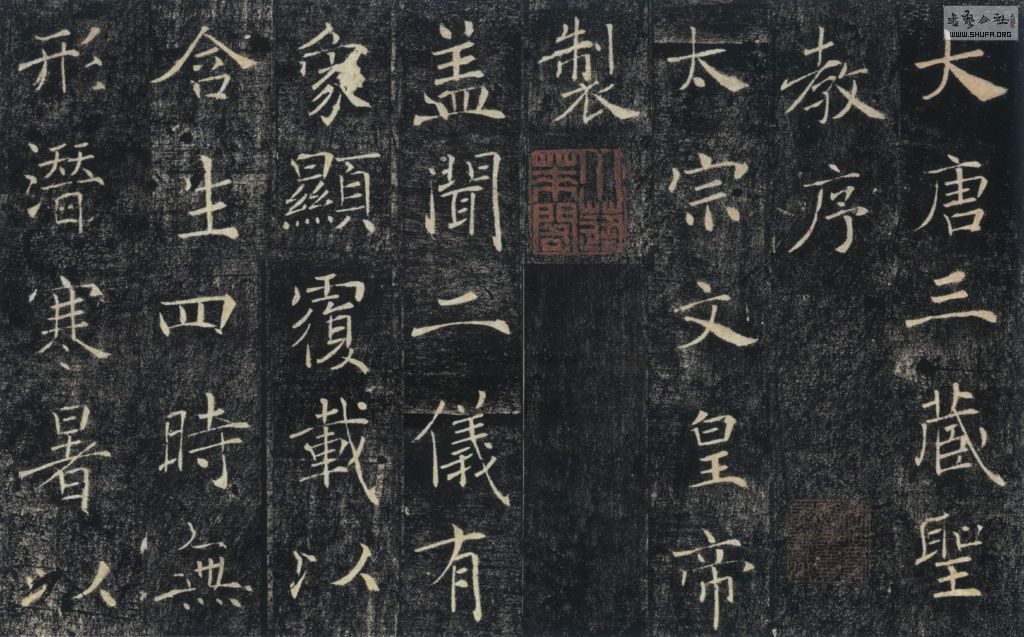 大唐三藏聖
教序
太宗文皇帝
製
盖聞二儀有
象顯覆載以
含生四時無
形潛寒暑以
书艺公社
WWW.SHUFA.ORG